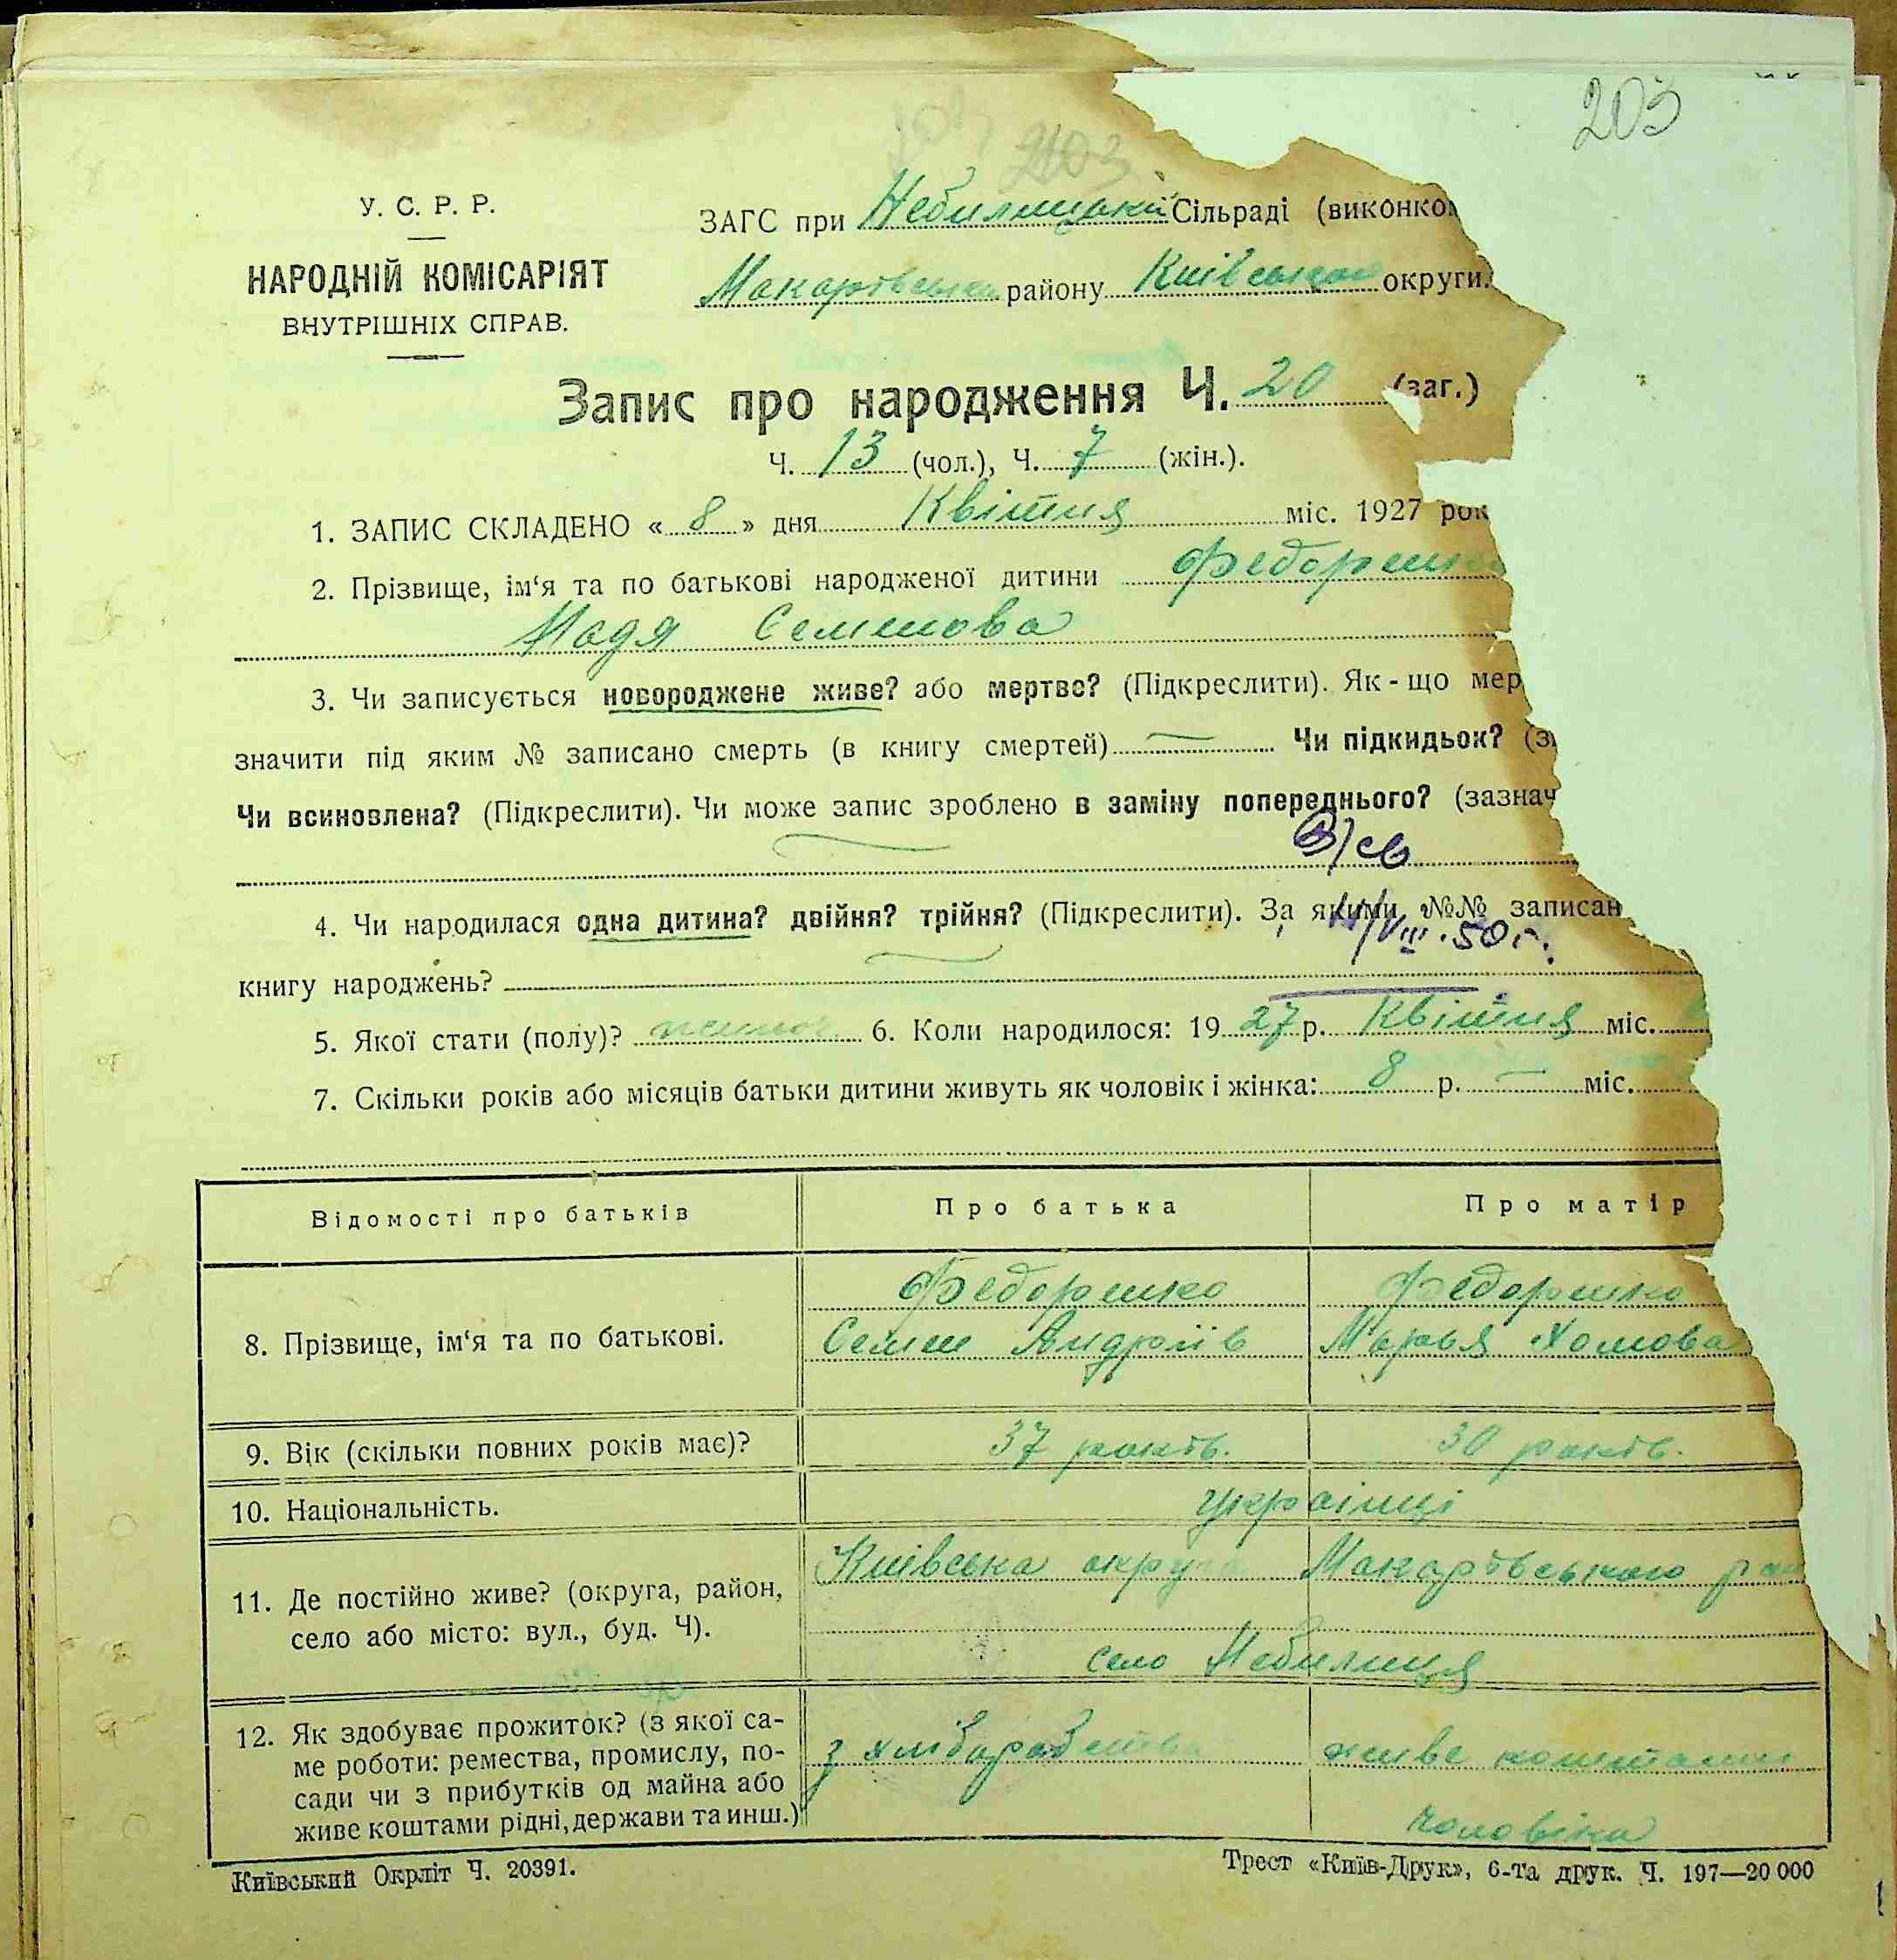 203
203
У. С. Р. Р.
НАРОДНІЙ КОМІСАРІЯТ
ВНУТРІШНІХ СПРАВ.
ЗАГС при Небилицькій Сільраді (виконко
Макарівськ району Київської округи.
Запис про народження Ч. 20 (заг.)
Ч. 13 (чол.), Ч. 7 (жін.).
1. ЗАПИС СКЛАДЕНО « 8 » дня Квітня міс. 1927 рок
2. Прізвище, ім‘я та по батькові народженої дитини Федоренк
Надя Семенова
3. Чи записується новороджене живе? або мертве? (Підкреслити). Як-що мер
значити під яким № записано смерть (в книгу смертей) — Чи підкидьок? (з
Чи всиновлена? (Підкреслити). Чи може запис зроблено в заміну попереднього? (зазнач
В/св
4. Чи народилася одна дитина? двійня? трійня? (Підкреслити). За якими №№ записан
/VIII.50 г.
книгу народжень?
5. Якої стати (полу)? жіноч 6. Коли народилося: 19 27 р. Квітня міс.
7. Скільки років або місяців батьки дитини живуть як чоловік і жінка: 8 р. — міс.
Відомості про батьків Про батька Про матір
8. Прізвище, ім‘я та по батькові. Федоренко Федоренко
Семен Андріїв Марья Хомова
9. Вік (скільки повних років має)? 37 років. 30 років.
10. Національність. українці
11. Де постійно живе? (округа, район, Київська округа Макарівського рай
село або місто: вул., буд. Ч).
село Небилиця
12. Як здобуває прожиток? (з якої са-
ме роботи: ремества, промислу, по- з хліборобства живе коштами
сади чи з прибутків од майна або
живе коштами рідні, держави та инш.) чоловіка
Київський Окрліт Ч. 20391. Трест «Київ-Друк», 6-та друк. Ч. 197—20 000